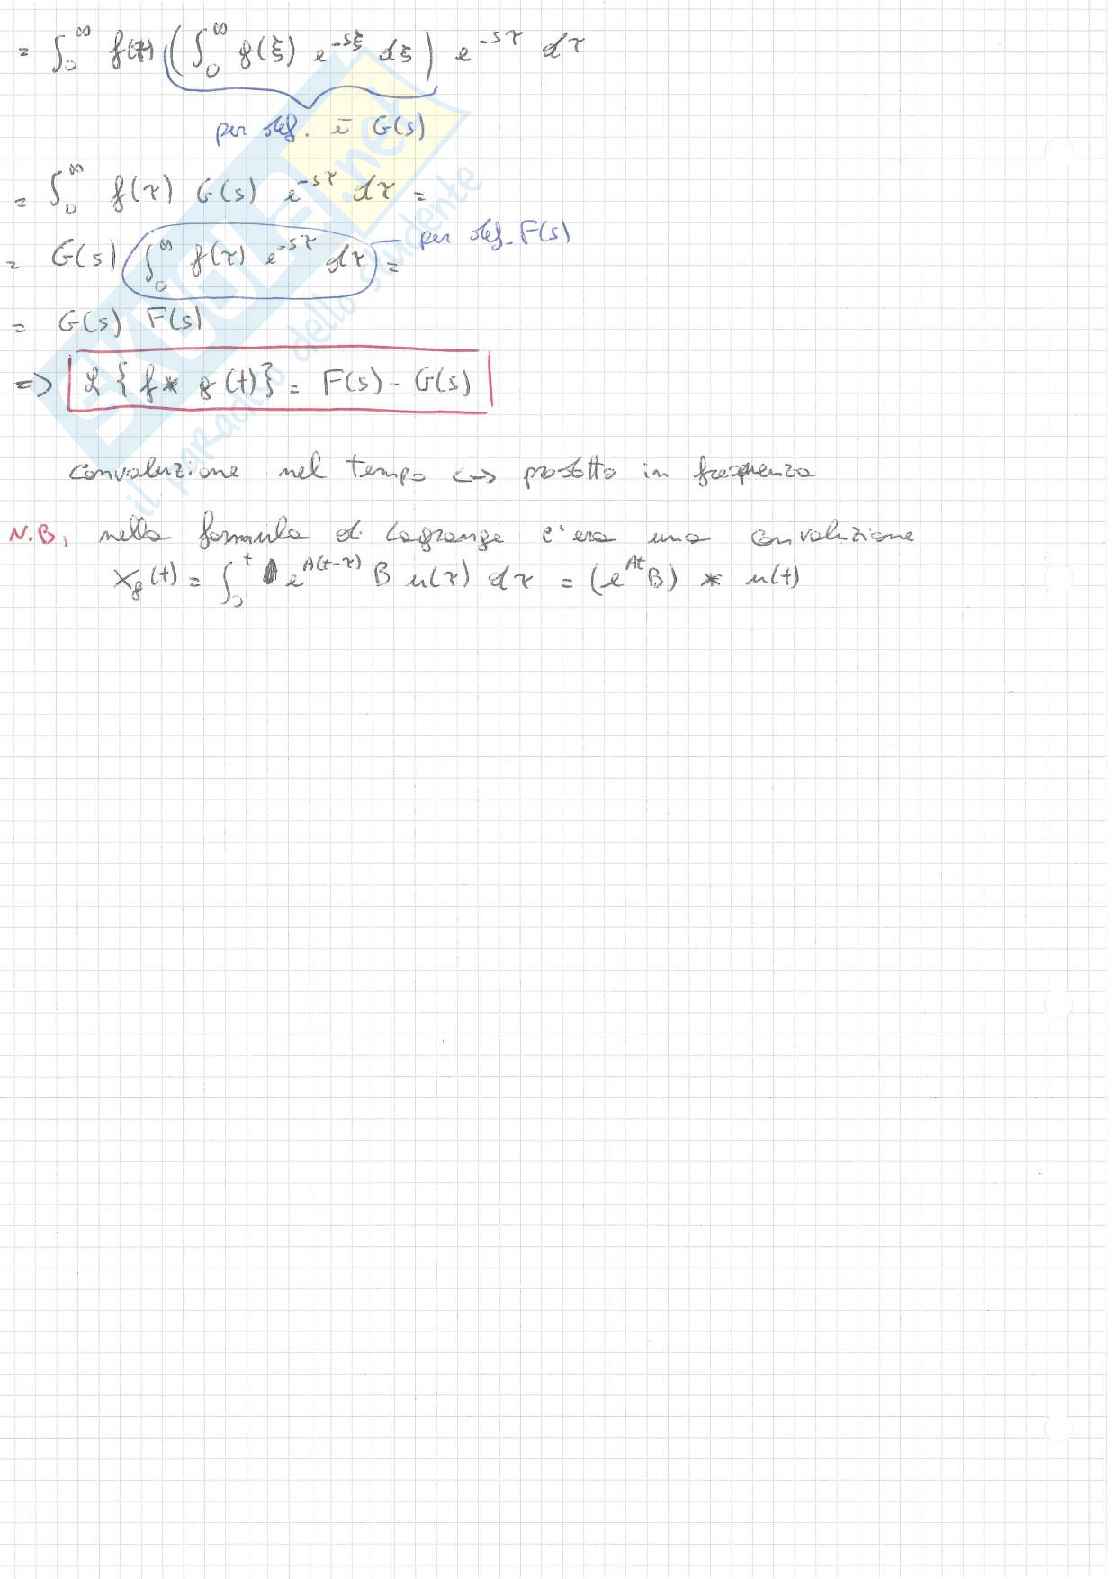 = ∫₀^∞ f(τ) (∫₀^∞ g(ξ) e^{-sξ} dξ) e^{-sτ} dτ
per def. è G(s)
= ∫₀^∞ f(τ) G(s) e^{-sτ} dτ =
= G(s) ∫₀^∞ f(τ) e^{-sτ} dτ = per def. F(s)
= G(s) F(s)
=> ℒ{f * g(t)} = F(s) · G(s)
convoluzione nel tempo <-> prodotto in frequenza
N.B. nella formula di Lagrange c'era una convoluzione
x_f(t) = ∫₀^t e^{A(t-τ)} B u(τ) dτ = (e^{At}B) * u(t)
SKUOLA.net
il paradiso dello studente